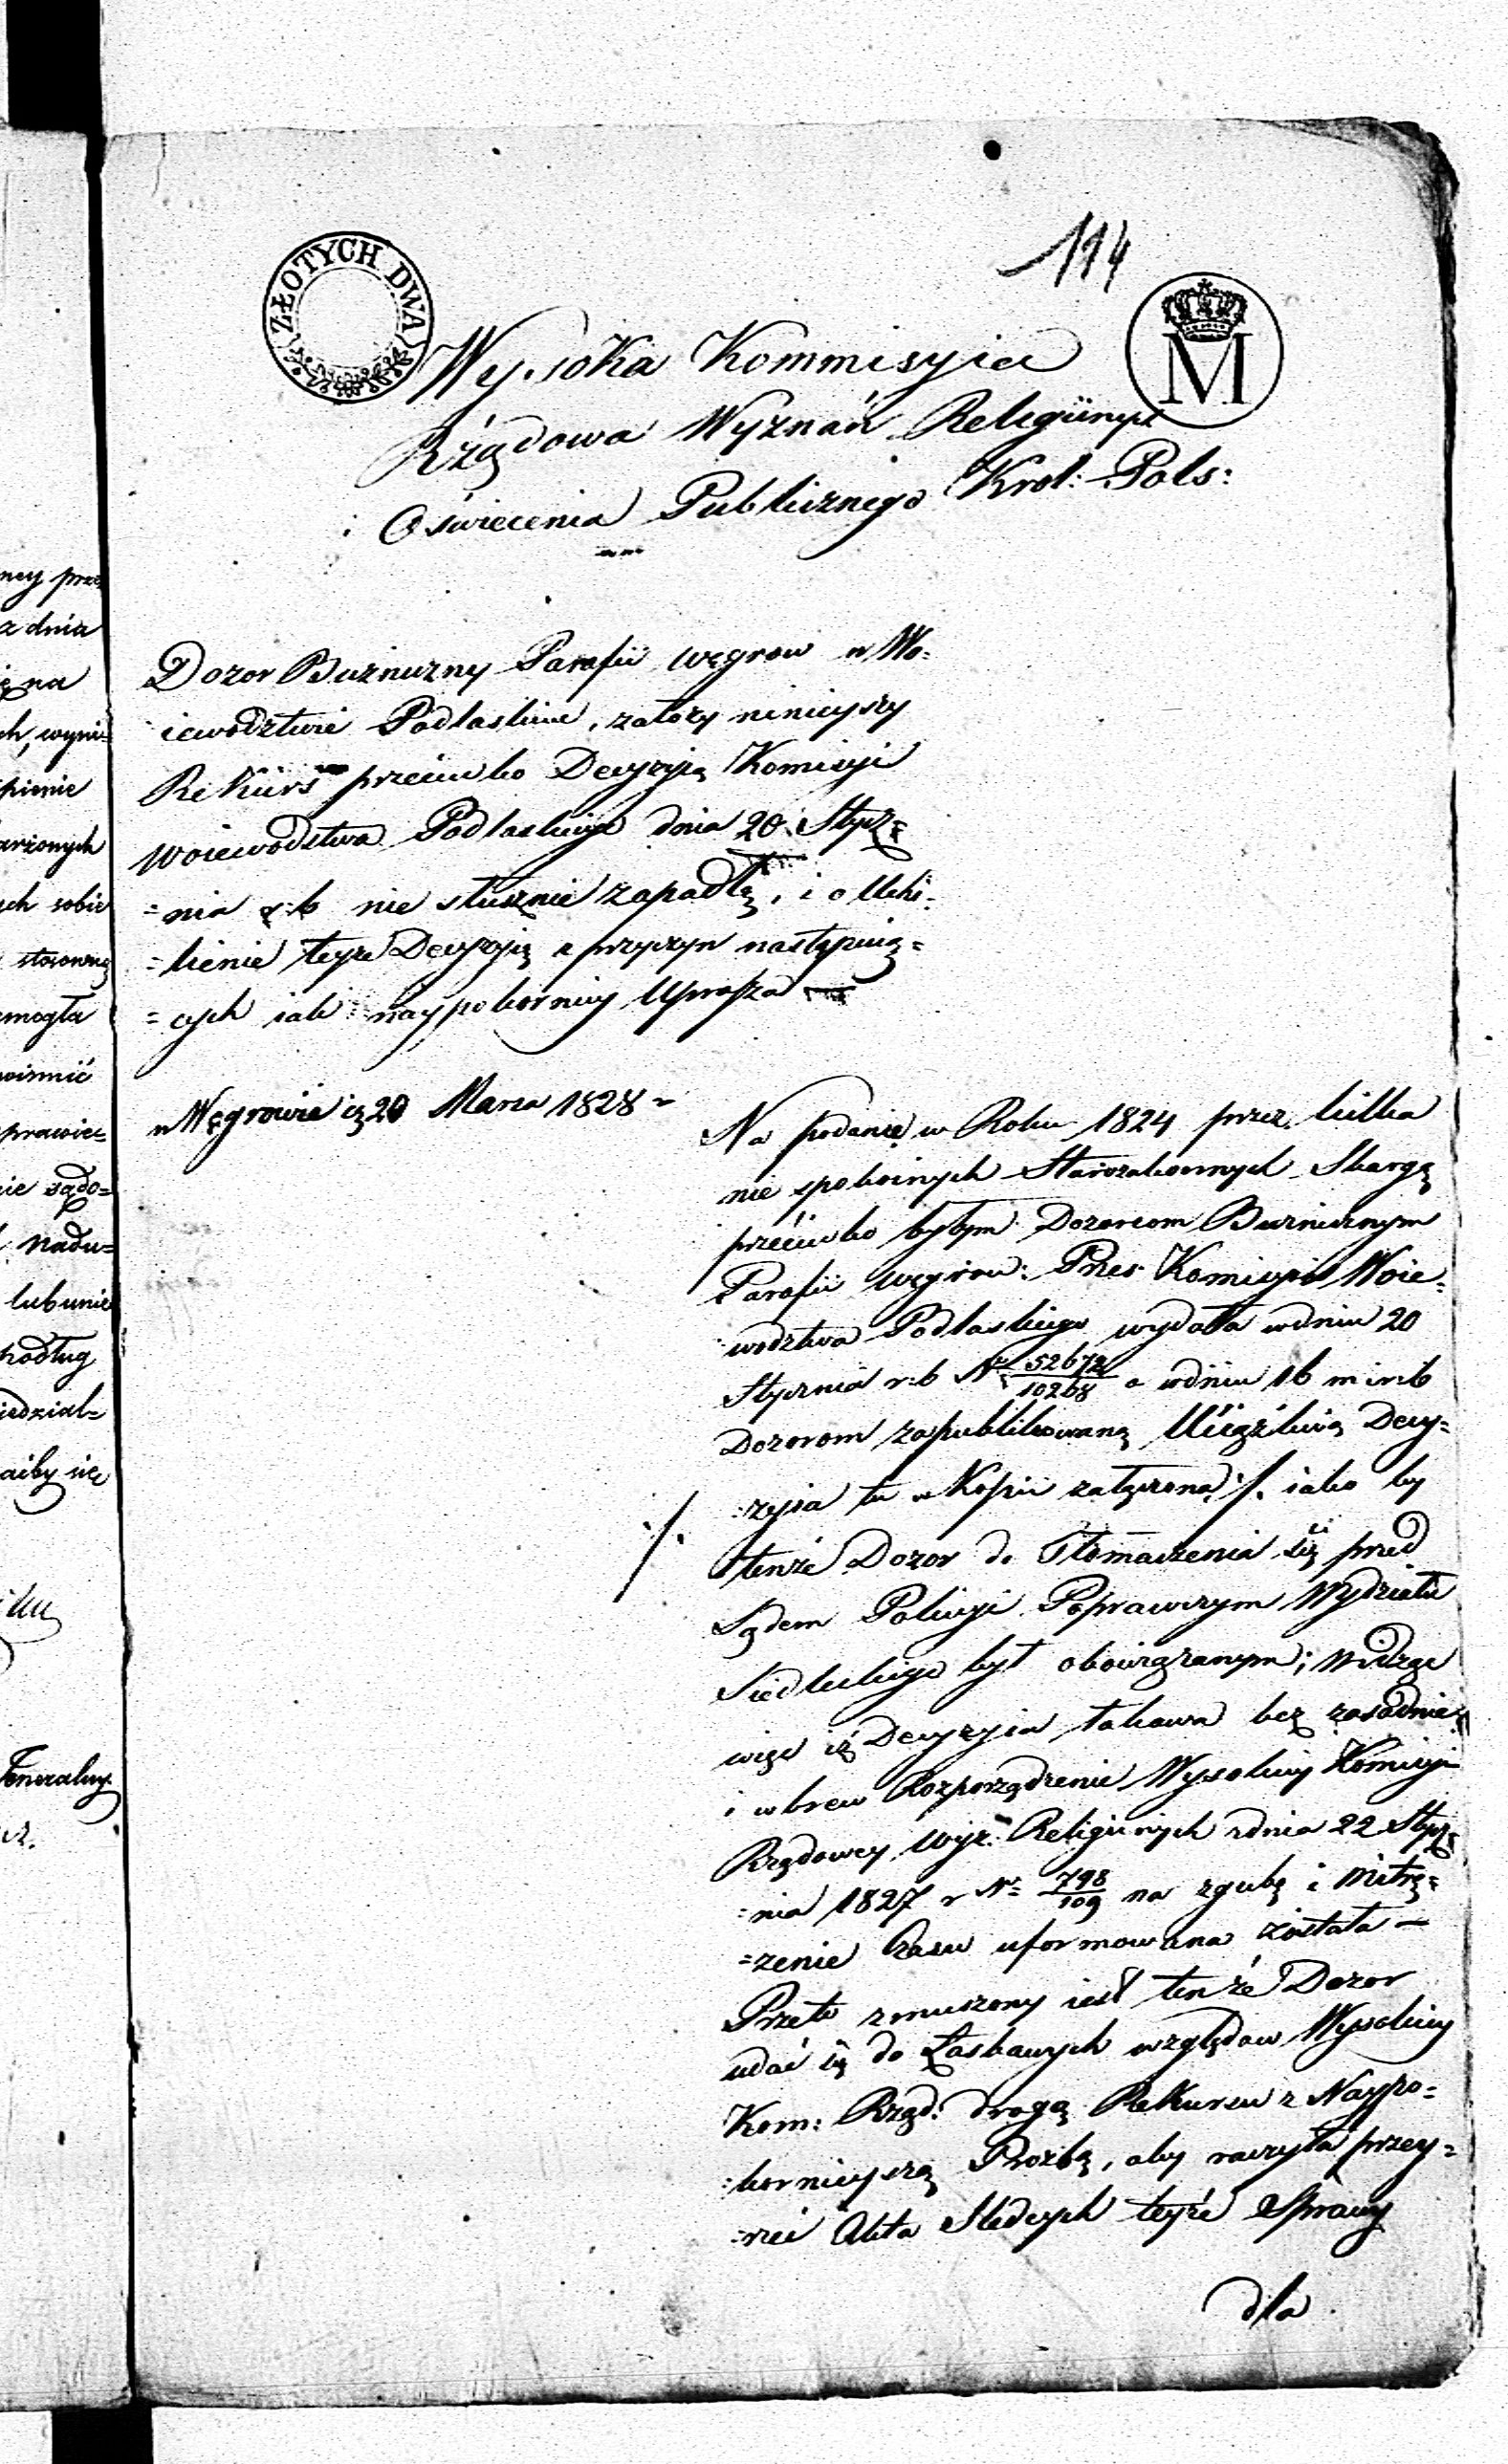 114
ZŁOTYCH DWA
M
Wysoka Kommisyia
Rządowa Wyznań Religiinych
i Oświecenia Publicznego Krol: Pols:
Dozor Bużniczny Parafii Węgrow w Wo:
iewodztwie Podlaskim, załozy ninieyszy
Rekurs przeciwko Decyzyią Komisyi
Woiewodstwa Podlaskiego dnia 20 Stycz=
=nia r:b nie słusznie zapadłą, i o Uchi=
=lenie teyże Decyzyią z przyczyn następuią=
=cych iak naypokorniey Uprasza
w Węgrowie 20 Marca 1828
Na podanie w Roku 1824 przez kilka
nie spokoinych Starozakonnych Skargę
przeciwko byłym Dozorcom Bużnicznym
Parafii Węgrow: Przes. Komisyia Woie=
wodztwa Podlaskiego wydała w dniu 20
Stycznia r:b Nr 52672/10268 a w dniu 16 m i r:b
Dozorom zapublikowaną Uciążliwą Decy=
=zyia tu w Kopii załączona ·/. iako by
·/.
tenże Dozor do Tłomaczenia się przed
Sądem Policyi Poprawczym Wydziału
Siedleckiego był obowiązanym; widząc
więc iż Decyzyia takowa bez zasadnie
i wbrew Rozporządzenie Wysokiey Komisyi
Rządowey Wyz: Religiinych z dnia 22 Stycz=
=nia 1827 r Nr 798/109 na zgubę i mitrę=
=zenie Czasu uformowana została —
Przeto zmuszony iest tenże Dozor
udać się do Łaskawych względow Wysokiey
Kom: Rząd: drogą Rekursu z Naypo=
=kornieyszą Prozbą, aby raczyła przey=
=rzeć Akta Śledczych teyże Sprawy
dla
ney prze
z dnia
ię na
ch, wyni=
pienie
arżonych
ych sobie
stosowną
mogła
prawie=
nie sądo=
nadu=
lubunie
podług
iedzial=
aiby się
Generalny